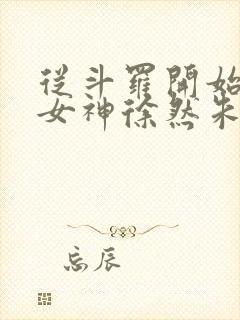 從斗羅開始
女神徐然朱
忘辰